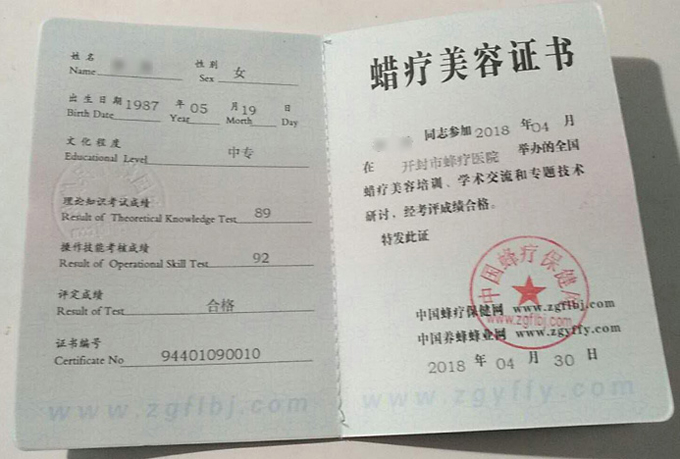 姓名
Name
性别
Sex 女
出生日期 1987 年 05 月 19 日
Birth Date Year Month Day
文化程度
Educational Level 中专
理论知识考试成绩
Result of Theoretical Knowledge Test 89
操作技能考核成绩
Result of Operational Skill Test 92
评定成绩
Result of Test 合格
证书编号
Certificate No 94401090010
www.zgflbj.com
蜡疗美容证书
同志参加 2018 年 04 月
在 开封市蜂疗医院 举办的全国
蜡疗美容培训、学术交流和专题技术
研讨，经考评成绩合格。
特发此证
中国蜂疗保健网
www.zgflbj.com
中国蜂疗保健网 www.zgflbj.com
中国养蜂蜂业网 www.zgyffy.com
2018 年 04 月 30 日
www.zgyffy.com